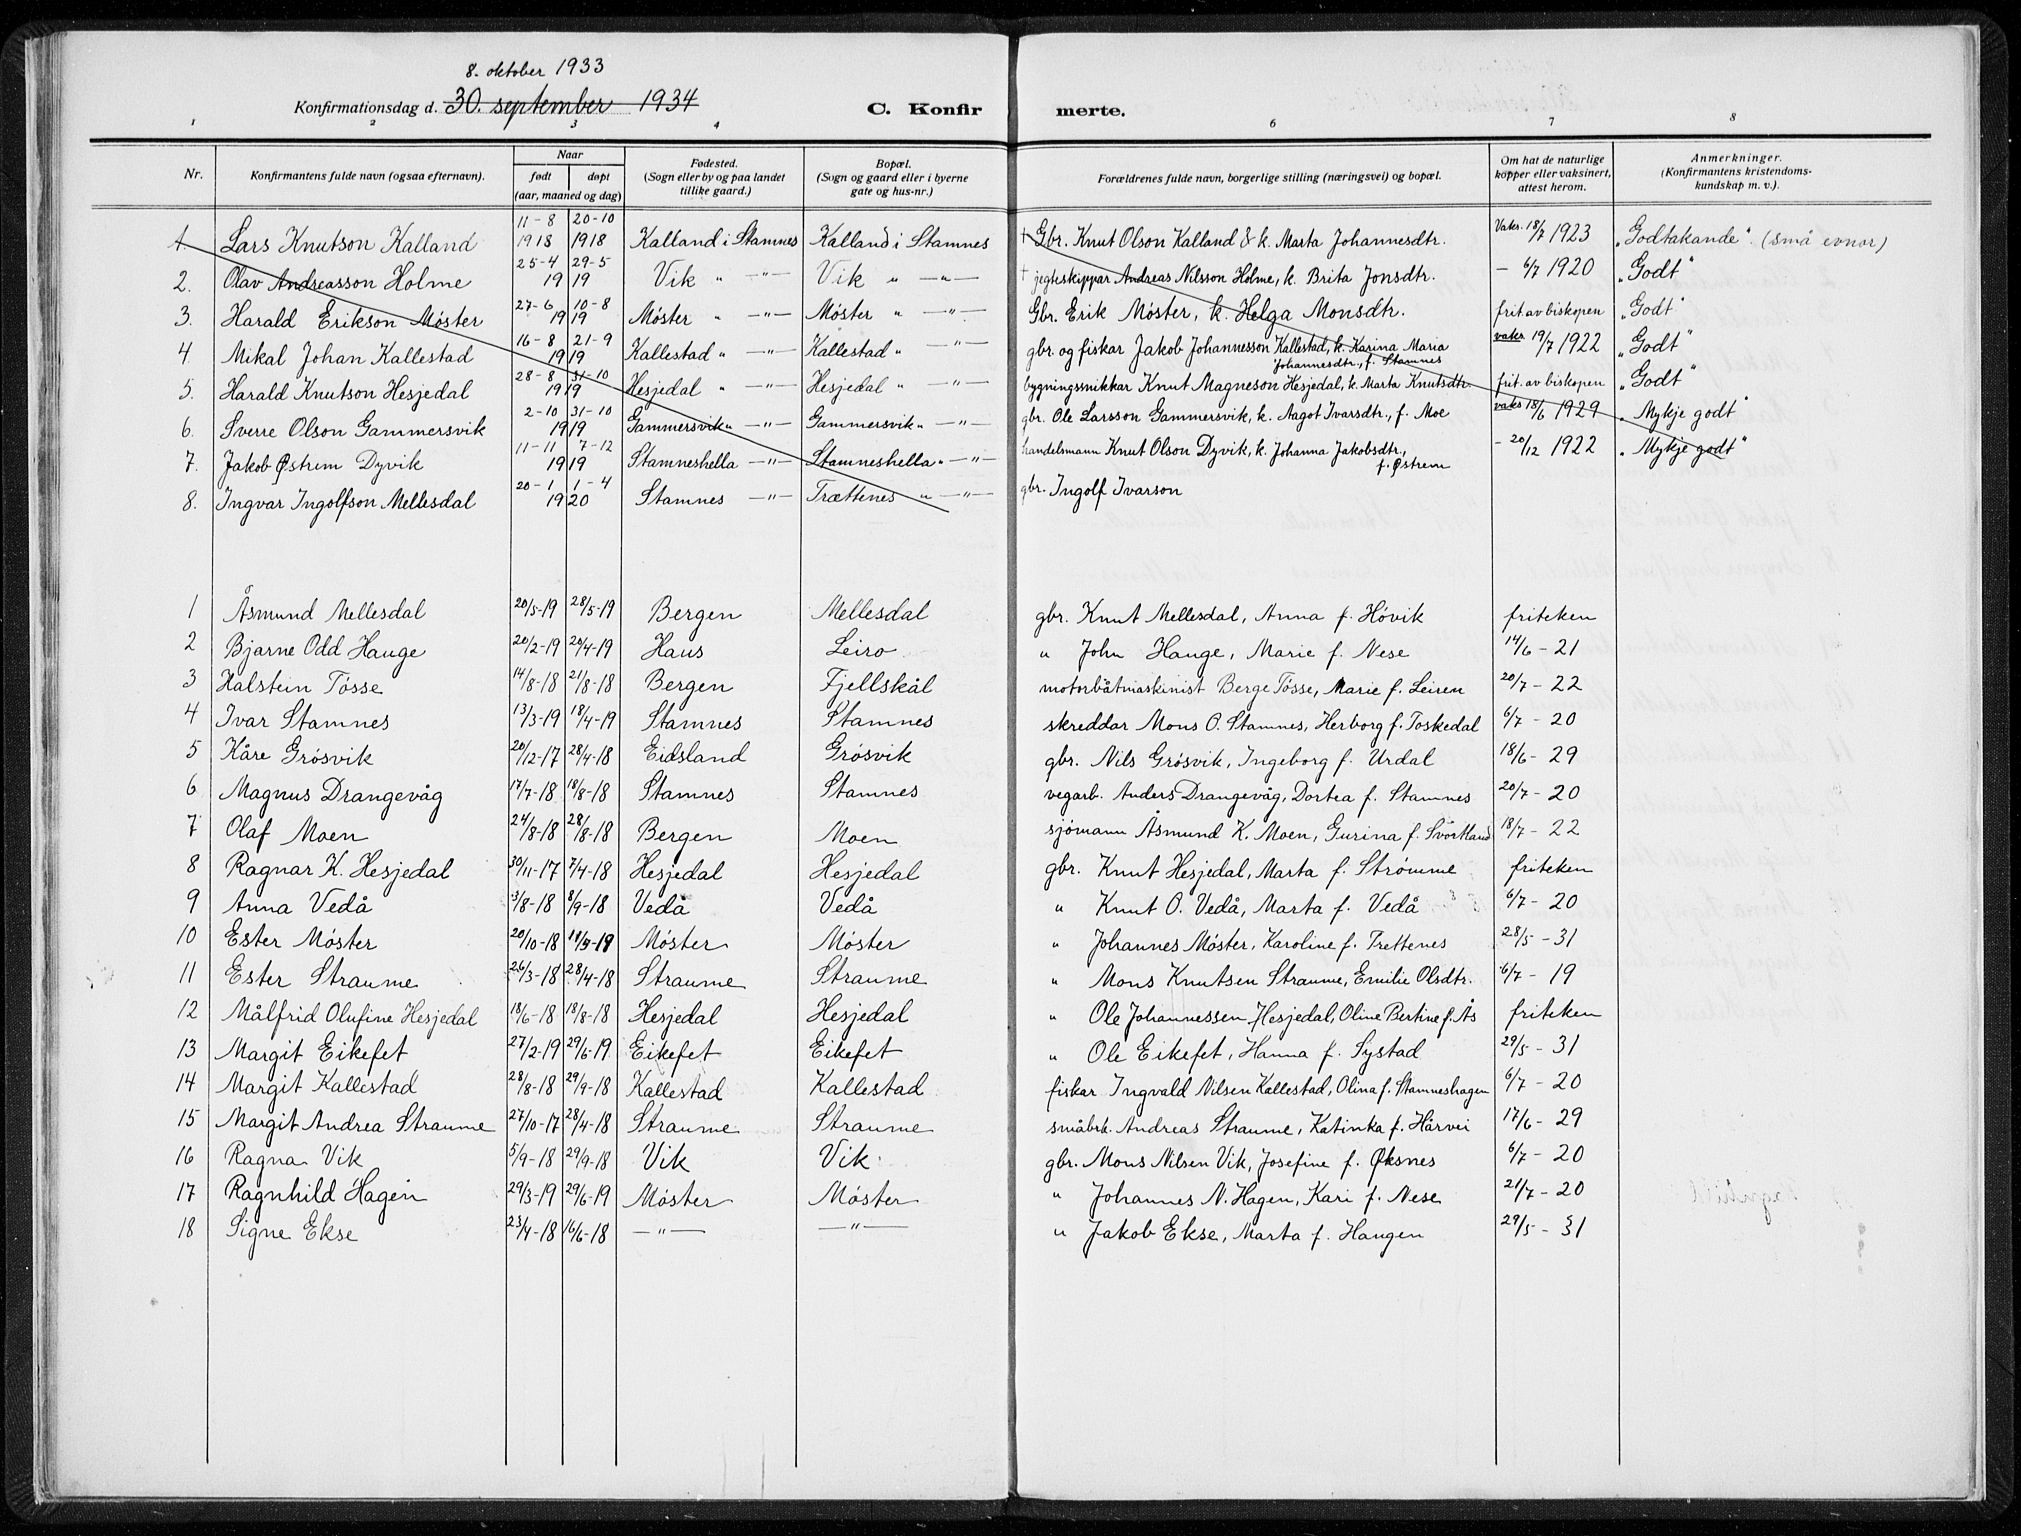 8. oktober 1933
Konfirmationsdag d. 30. september 1934 C. Konfirmerte.
1 2 3 4 5 6 7 8
Nr. Konfirmantens fulde navn (ogsaa efternavn). Naar født døpt (aar, maaned og dag) Fødested. (Sogn eller by og paa landet tillike gaard.) Bopæl. (Sogn og gaard eller i byerne gate og hus-nr.) Forældrenes fulde navn, borgerlige stilling (næringsvei) og bopæl. Om hat de naturlige kopper eller vaksinert, attest herom. Anmerkninger. (Konfirmantens kristendomskundskap m. v.).
1. Lars Knutson Kalland 11-8 1918 20-10 1918 Kalland i Stamnes Kalland i Stamnes † Gbr. Knut Olson Kalland & k. Marta Johannesdtr. Vaks. 18/7 1923 "Godtakande". (små evnor)
2. Olav Andreasson Holme 25-4 29-5 1919 Vik " —"— Vik " —"— † jegteskippar Andreas Nilsson Holme, k. Brita Jonsdtr. — 6/7 1920 "Godt"
3. Harald Erikson Møster 27-6 10-8 1919 Møster " —"— Møster " —"— Gbr. Erik Møster, k. Helga Monsdtr. frit av biskopen "Godt"
4 Mikal Johan Kallestad 16-8 21-9 1919 Kallestad " —"— Kallestad " —"— gbr. og fiskar Jakob Johannesson Kallestad, k. Karina Maria Johannesdtr., f. Stamnes vaks 19/7 1922 "Godt"
5. Harald Knutson Hesjedal 28-8 31-10 1919 Hesjedal " —"— Hesjedal " —"— bygningssnikkar Knut Magneson Hesjedal, k. Marta Knutsdtr. frit. av biskopen "Godt"
6. Sverre Olson Gammersvik 2-10 31-10 1919 Gammersvik " —"— Gammersvik " —"— gbr. Ole Larsson Gammersvik, k. Aagot Ivarsdtr., f. Moe vaks 18/6 1929 "Mykje godt"
7. Jakob Østrem Dyvik 11-11 7-12 1919 Stamneshella —"— Stamneshella " —"— handelsmann Knut Olson Dyvik, k. Johanna Jakobsdtr., f. Østrem — 20/12 1922 "Mykje godt"
8. Ingvar Ingolfson Mellesdal 20-1 1-4 1920 Stamnes —"— Trættenes " —"— gbr. Ingolf Ivarson
1 Åsmund Mellesdal 20/5-19 28/5-19 Bergen Mellesdal gbr. Knut Mellesdal, Anna f. Hóvik friteken
2 Bjarne Odd Hauge 20/2-19 20/4-19 Haus Leiro " John Hauge, Marie f. Nese 14/6 - 21
3 Halstein Tósse 14/8-18 21/8-18 Bergen Fjellskål motorbåtmaskinist Berge Tósse, Marie f. Leiren 20/7 - 22
4 Ivar Stamnes 13/3-19 18/4-19 Stamnes Stamnes skreddar Mons O. Stamnes, Herborg f. Toskedal 6/7 - 20
5 Kåre Grósvik 20/12-17 28/4-18 Eidsland Grósvik gbr. Nils Grósvik, Ingeborg f. Urdal 18/6 - 29
6 Magnus Drangevåg 17/7-18 18/8-18 Stamnes Stamnes vegarb. Anders Drangevåg, Dortea f. Stamnes 20/7 - 20
7 Olaf Moen 24/8-18 28/8-18 Bergen Moen sjómann Åsmund K. Moen, Gurina f. Svortland 18/7 - 22
8 Ragnar K. Hesjedal 30/11-17 7/4-18 Hesjedal Hesjedal gbr. Knut Hesjedal, Marta f. Strømme friteken
9 Anna Vedå 3/8-18 8/9-18 Vedå Vedå " Knut O. Vedå, Marta f. Vedå 6/7 - 20
10 Ester Móster 20/10-18 Móster Móster " Johannes Móster, Karoline f. Trettenes 28/5 - 31
11 Ester Straume 26/3-18 28/4-18 Straume Straume " Mons Knutsen Straume, Emilie Olsdtr. 6/7 - 19
12 Målfrid Olufine Hesjedal 18/6-18 18/8-18 Hesjedal Hesjedal " Ole Johannessen Hesjedal, Oline Bertine f. Ås friteken
13 Margit Eikefet 27/2-19 29/6-19 Eikefet Eikefet " Ole Eikefet, Hanna f. Systad 29/5 - 31
14 Margit Kallestad 28/8-18 29/9-18 Kallestad Kallestad fiskar Ingvald Nilsen Kallestad, Olina f. Stamneshagen 6/7 - 20
15 Margit Andrea Straume 27/10-17 28/4-18 Straume Straume småbrk. Andreas Straume, Katinka f. Hårvei 17/6 - 29
16 Ragna Vik 5/9-18 29/9-18 Vik Vik gbr. Mons Nilsen Vik, Josefine f. Øksnes 6/7 - 20
17 Ragnhild Hagen 29/3-19 29/6-19 Móster Móster " Johannes N. Hagen, Kari f. Nese 21/7 - 20
18 Signe Ekse 23/4-18 16/6-18 —"— —"— " Jakob Ekse, Marta f. Haugen 29/5 - 31